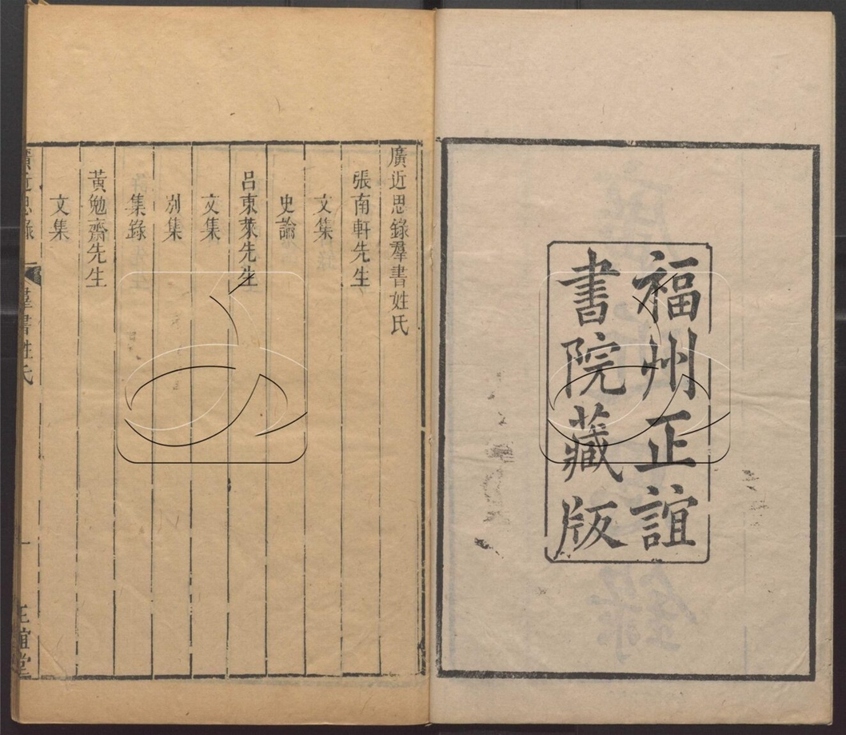 福州正誼
書院藏版
廣近思錄羣書姓氏
張南軒先生
文集
史論
呂東萊先生
文集
別集
集錄
黃勉齋先生
文集
廣近思錄
羣書姓氏
一
正誼堂